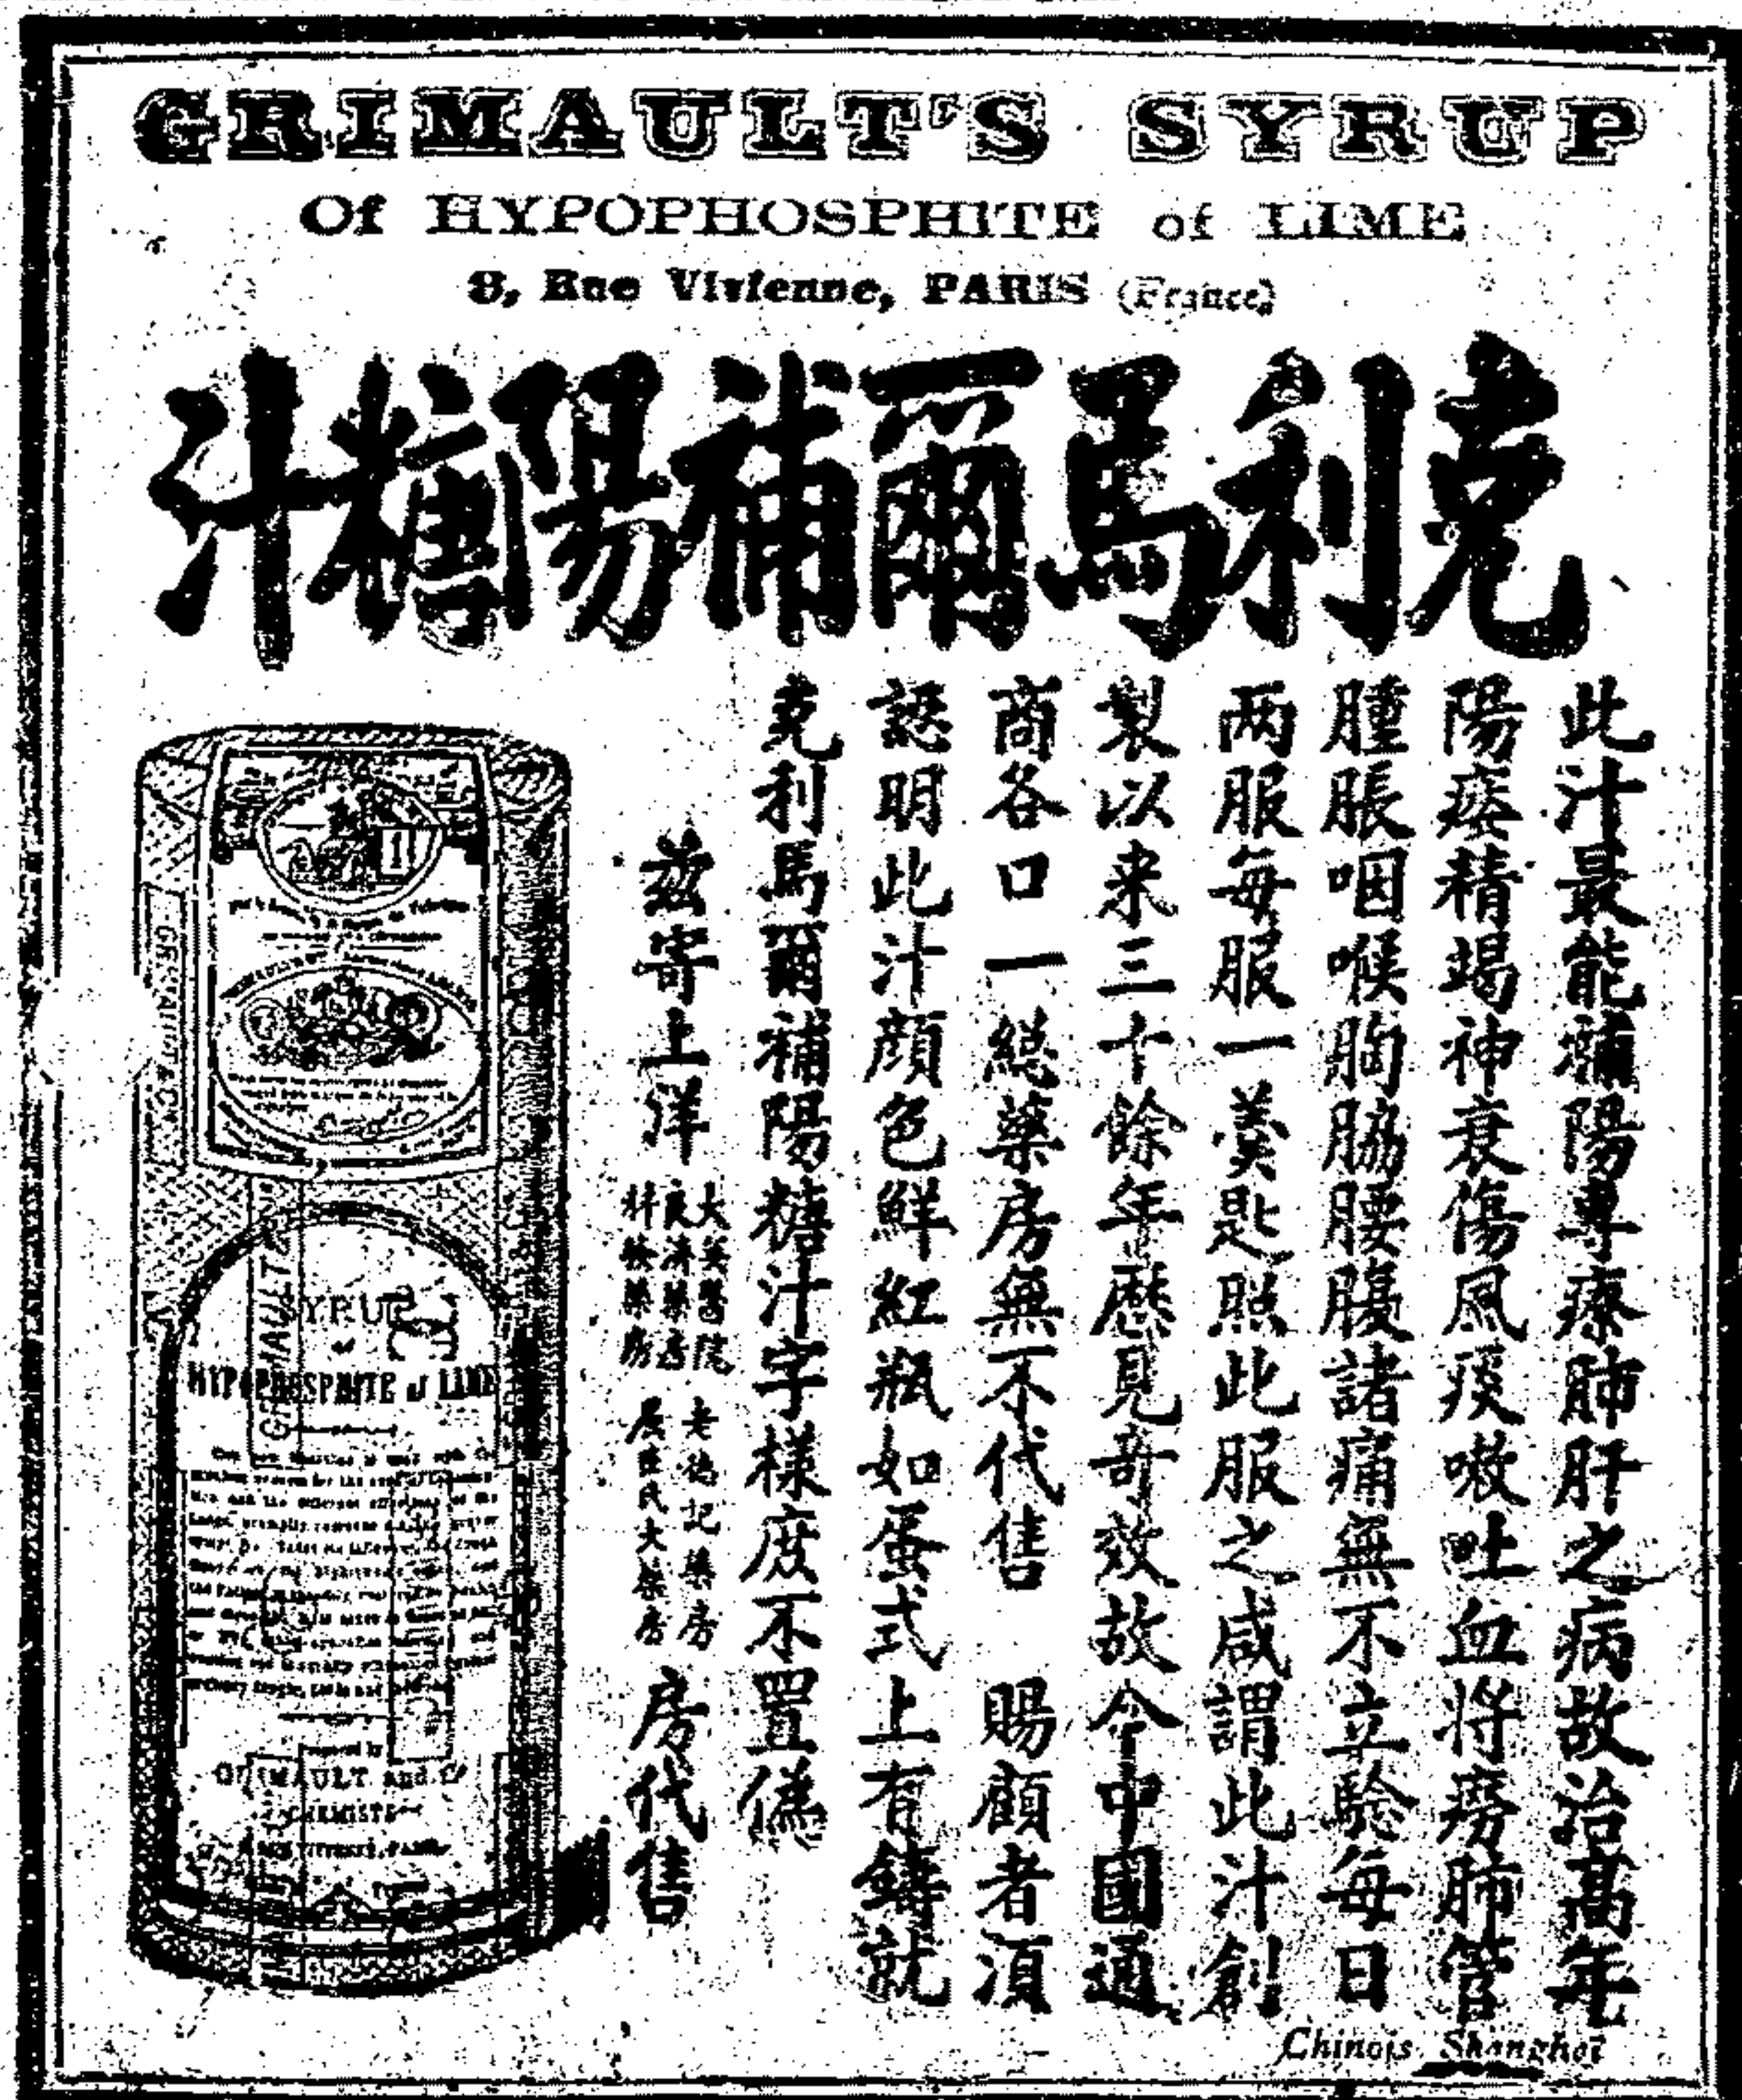 GRIMAULT'S SYRUP
Of HYPOPHOSPHITE of LIME
8, Rue Vivienne, PARIS (France)
克利馬爾補陽糖汁
此汁最能補陽專療肺肝之病故治高年
陽痿精竭神衰傷風痰嗽吐血將癆肺管
腫脹咽喉胸脇腰腹諸痛無不立驗每日
两服每服一羮匙照此服之咸謂此汁創
製以来三十餘年歷見奇效故今中國通
商各口一總藥房無不代售 賜顧者須
認明此汁顔色鮮紅瓶如蛋式上有鑄就
克利馬爾補陽糖汁字樣庶不置僞
茲寄上洋
大英醫院
良濟藥房
科發藥房
老德記藥房
屈臣氏大藥房
房代售
GRIMAULT & Co
SYRUP
of
HYPOPHOSPHITE of LIME
Prepared by
GRIMAULT and Co
CHEMISTS
Chinois Shanghai